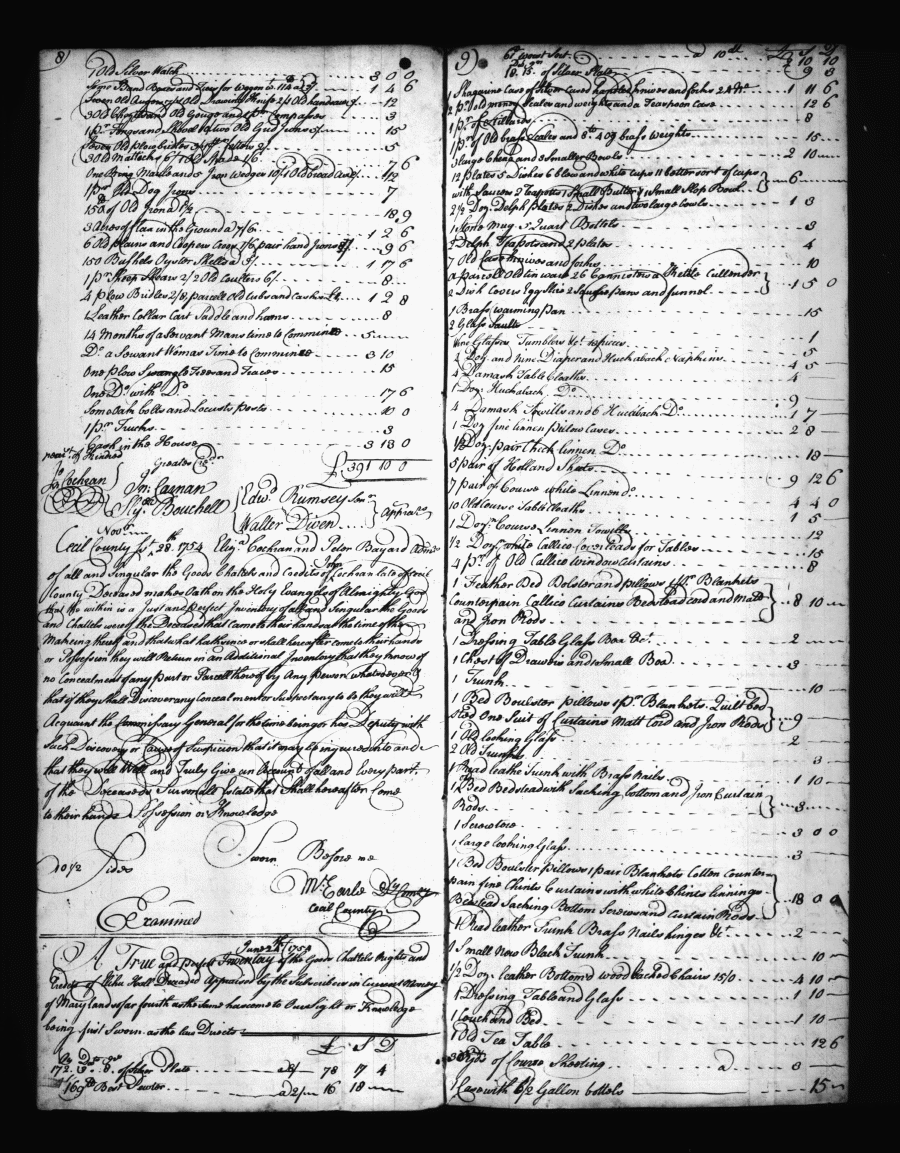 8)
1 Old Silver Watch 3 0 0
Some Band Boxes and for Waggon wt. 114 a 3/ 1 4 6
Seven Old Augers 7/6 Old Drawing Knife 2/ Old handsaw 12
Old Chopt and Old Gouge and pr. Compasses 3
1 pr. Tongs and Shovel two Old Grid Irons 15
Seven Old plow 5
3 Old Mattocks 6/ 1 Old Spade 1/6 7 6
One Ring Maule and 5 Iron Wedges 10/ 1 Old bread 12
1 pr. Old Dog Irons 7
150 lb of Old Iron a 1½ 18 9
3 Acres of flax in the Ground a 7/6 1 2 6
6 Old plains and Cooper 7/6 pair hand Irons 9 6
150 Bushels Oyster Shells a 3/. 1 17 6
1 pr. Sheep Shears 2/ 2 Old Coulters 6/. 8
4 plow Bridles 2/8 parcell Old tubs and casks 1 2 8
1 Leather Collar Cart Saddle and hams 8
14 Months of a Servant Mans time to Comminee 5
Do. a Servant Womas Time to Comminee 3 10
One plow Swingle Trees and Traces 15
One Do. with Do. 17 6
Some Oak bolts and Locusts posts 10 0
1 pr. Trucks 3
Cash in the House 3 13 0
£ 391 10 0
near of Kindred
Greatest Crs.
Jo. Cochran
Jn. Carnan
Bouchell
Edwd. Rumsey Senr.
Walter Diven
Apprais
Cecil County Novr. 28th. 1754 Eliza. Cochran and Peter Bayard Admrs
of all and Singular the Goods Chattels and Credits of John Cochran late of Cecil
County Deceased makes Oath on the Holy Evangels of Almighty God
that the within is a Just and perfect Inventory of all and Singular the Goods
and Chattels were of the Deceased that came to their hands at the time of the
Makeing thereof and that what hath since or shall hereafter come to their hands
or Possession they will Return in an Additional Inventory that they know of
no Concealment of any part or Parcell thereof by Any Person whatsoever
that if they Shall Discover any Concealment or Suspect any to be they will
Acquaint the Commissary General for the time being or his Deputy with
Such Discovery or Cause of Suspicion that it may be inquired into and
that they will Well and Truly Give an Account of all and Every part
of the Deceaseds personall Estate that Shall hereafter Come
to their hands Possession or Knowledge
Sworn Before me
10 1/2 Sides
Mr. Earle Dy Comry
Cecil County
Examined
June 24th 1754
A True and perfect Inventory of the Goods Chattels Rights and
Credits of Elisha Hall Deceased Appraised by the Subscribers in Current Money
of Maryland as far fourth as the Same has come to Our Sight or Knowledge
being first Sworn as the law Directs
£ S D
172.. 13.. 8. of silver Plate a 9/ 78 17 4
169 lb Best Pewter a 2/ 16 18
9)
67 worst Sort a 10d 2 10 10
18. 13. of Silver Plate 9 3
1 Shagreen Case of Silver Cased handled knives and forks 1 11 6
2 pr. Old money Scales and weights and a Teaspoon Case 12 6
1 pr. of Stilliards 8
1 pr. of Old brass Scales and 8 lb 4 oz brass Weights 15
3 large Cheap and 3 Smaller Bowls 2 10
12 plates 5 Dishes 6 blue and white cups 11 better sort of cups
with Saucers 2 Teapotes 1 Small Butter 1 Small Slop Bowl 6
2½ Doz. Delph plates 2 Dishes and two large bowls 1 3
1 Stone Mug 5 Quart Bottels 3
3 Delph Teapots and 2 plates 4
7 Old Case knives and forks 10
a parcell Old tin ware 26 Cannisters a Kettle Cullender
Dish Covers Egg Slice 2 Square pans and funnel 1 5 0
1 Brass warming Pan 15
2 Glass Saults
Wine Glasses Tumblers &c. 1
2 Doz. and nine Diaper and Huckaback Napkins 4 5
4 Damask Table Cloaths 4
1 Doz. Huckaback Do. 9
4 Damask Towells and 6 Huckback Do. 1 7
1 Doz fine linnen pillow Cases 2 8
1/2 Doz. pair thick linnen Do. 18
5 pair of Holland Sheets 9 12 6
7 pair of Course white Linnen do.
10 Old Course Table Cloaths 4 4 0
1 Doz. Course Linnen Towells 1 5
1/2 Doz. white Callico Coverleads for Tables 12
4 pr. of Old Callico window Curtains 15
1 Feather Bed Bolster and pillows 1 pr. Blankets 8
Counterpain Callico Curtains Bedstead cord and Matt
and Iron Rods 8 10
1 Dressing Table Glass Box &c. 2
1 Chest of Drawers and Small Box 3
1 Trunk 10
1 Bed Boulster pillows 1 pr. Blankets Quilt bed
sted One Suit of Curtains Matt Cord and Iron Rods 9
1 Old looking Glass 2
2 Old Trunks 3
1 Read leathr Trunk with Brass Nails 1 10
1 Bed Bedstead with Sacking bottom and Iron Curtain
Rods 3
1 Scrowtore 3 0 0
1 large looking Glass 3
1 Bed Boulster Pillows 1 pair Blankets Cotton Counter
pain fine Chints Curtains with white Chints linnings
Bedsted Sacking Bottom Screws and Curtain Rods 18 0 0
1 Read leather Trunk Brass Nails hinges &c. 2
1 Small New Black Trunk 10
1/2 Doz. leather Bottom'd wood backed Chairs 15/0 4 10
1 Dressing Table and Glass 1 10
1 Couch and Bed 1 10
1 Old Tea Table 12 6
yds. of Course Sheeting a 3
1 Case with 6/2 Gallon bottels 15